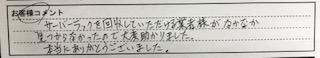 お客様コメント
サーバーラックを回収していただける業者様がなかなか
見つからなかったので大変助かりました。
本当にありがとうございました。